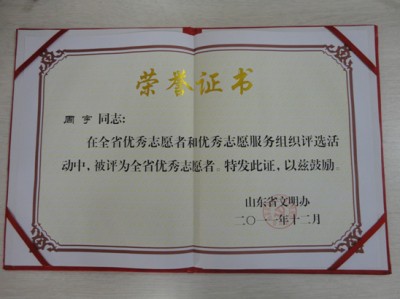 荣誉证书
周宇 同志:
在全省优秀志愿者和优秀志愿服务组织评选活
动中,被评为全省优秀志愿者。特发此证,以兹鼓励。
山东省文明办
二〇一一年十二月